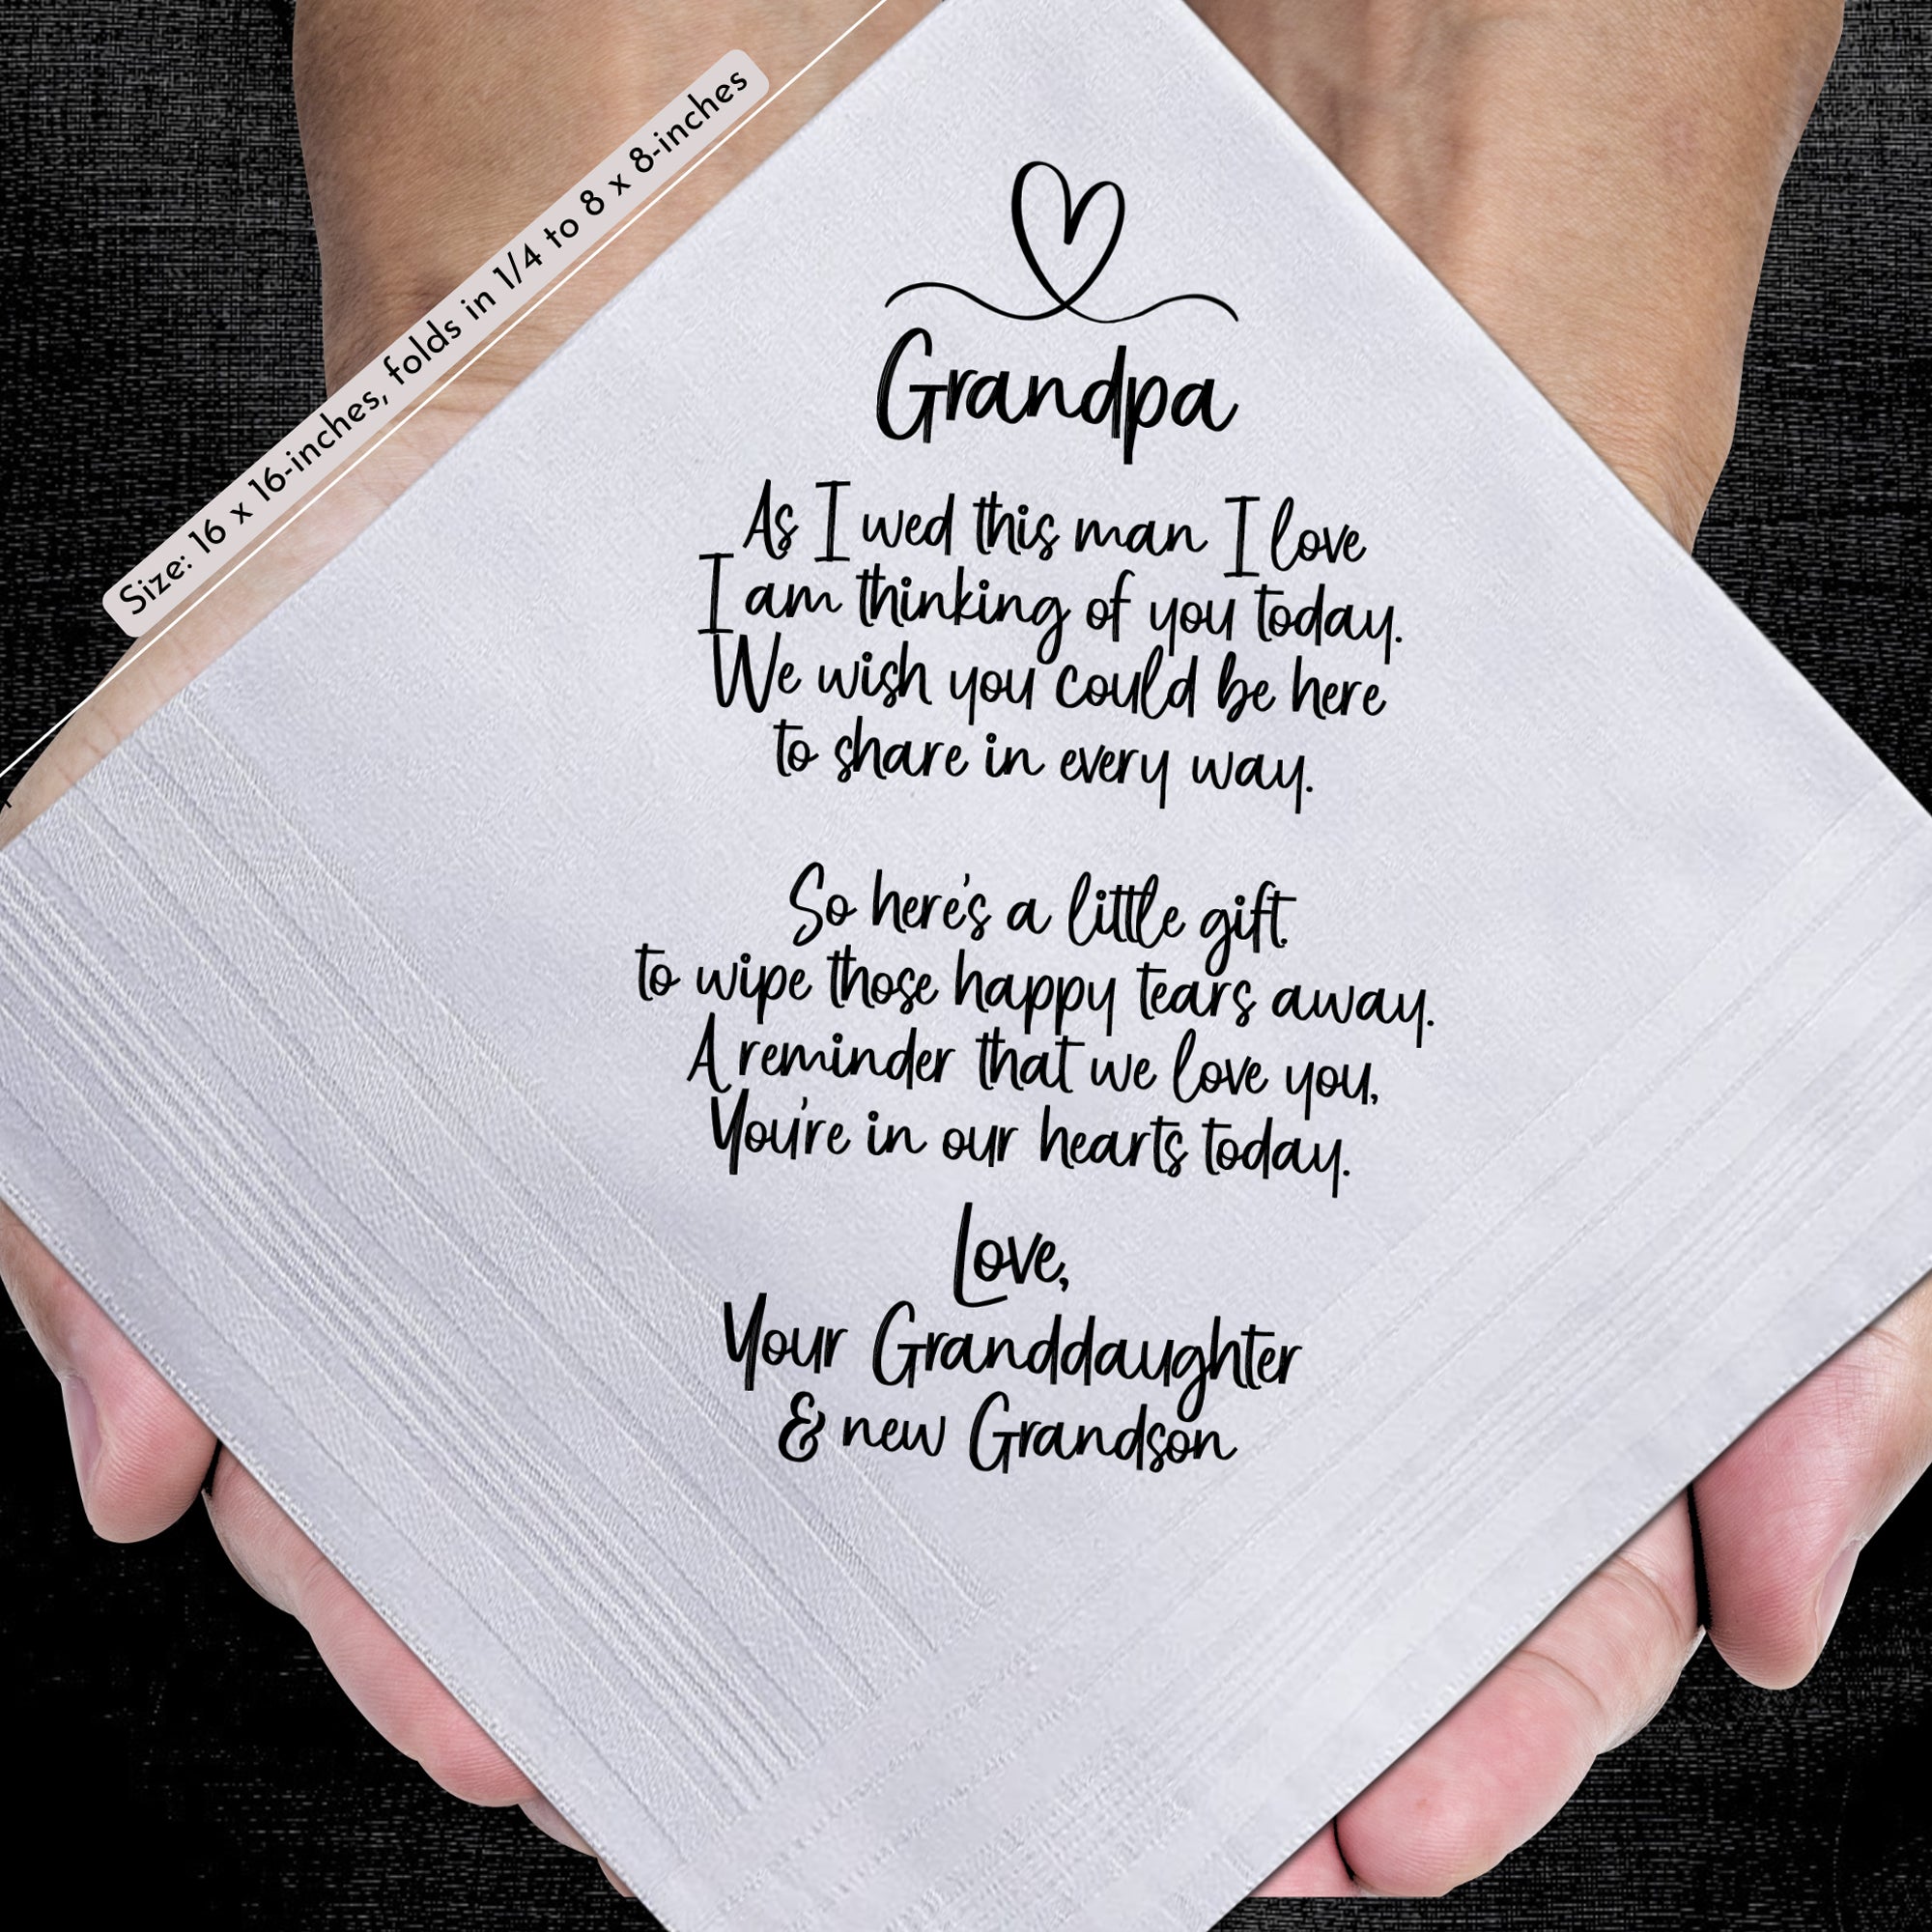 Size: 16 x 16-inches, folds in 1/4 to 8 x 8-inches
Grandpa
As I wed this man I love
I am thinking of you today.
We wish you could be here
to share in every way.
So here's a little gift
to wipe those happy tears away.
A reminder that we love you,
You're in our hearts today.
Love,
Your Granddaughter
& new Grandson